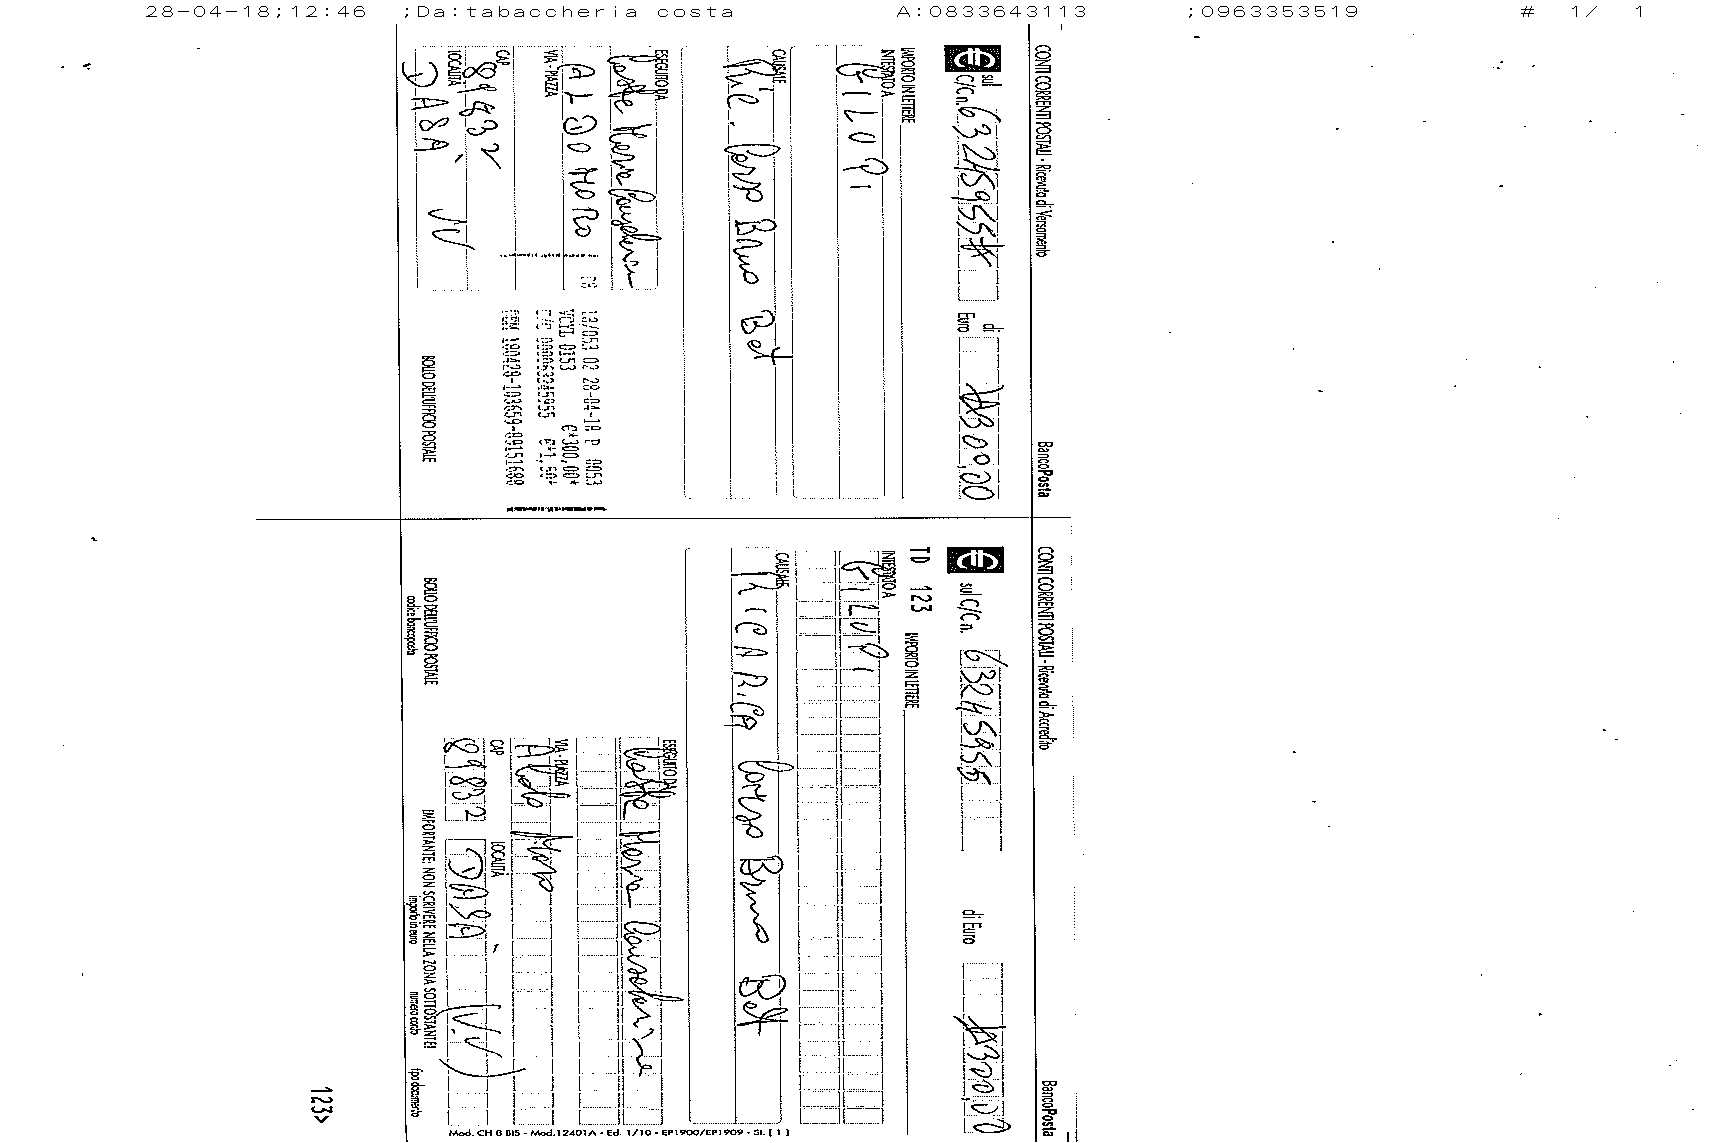 28-04-18;12:46 ;Da:tabaccheria costa A:0833643113 ;0963353519 # 1/ 1
CONTI CORRENTI POSTALI - Ricevuta di Versamento BancoPosta
sul C/C n. 63245955 di Euro 300,00
IMPORTO IN LETTERE
INTESTATO A
GILUPI
CAUSALE
Ric. Corso Bruno Bet
ESEGUITO DA
VIA - PIAZZA
ALDO MORO
CAP
89832
LOCALITÀ
DASÀ VV
18/053 02 28-04-18 P 0053
VCYL 0153 €*300,00*
C/C 000063245955 €*1,50*
BOLLO DELL'UFFICIO POSTALE
CONTI CORRENTI POSTALI - Ricevuta di Accredito BancoPosta
sul C/C n. 63245955 di Euro 300,00
TD 123 IMPORTO IN LETTERE
INTESTATO A
GILUPI
CAUSALE
RICARICA Corso Bruno Bet
ESEGUITO DA
VIA - PIAZZA
Aldo Moro
CAP LOCALITÀ
89832 DASÀ (VV)
BOLLO DELL'UFFICIO POSTALE
codice bancoposta
IMPORTANTE: NON SCRIVERE NELLA ZONA SOTTOSTANTE!
importo in euro numero conto tipo documento
123>
Mod. CH 8 BIS - Mod.12401A - Ed. 1/10 - EP1900/EP1909 - St. [ 1 ]